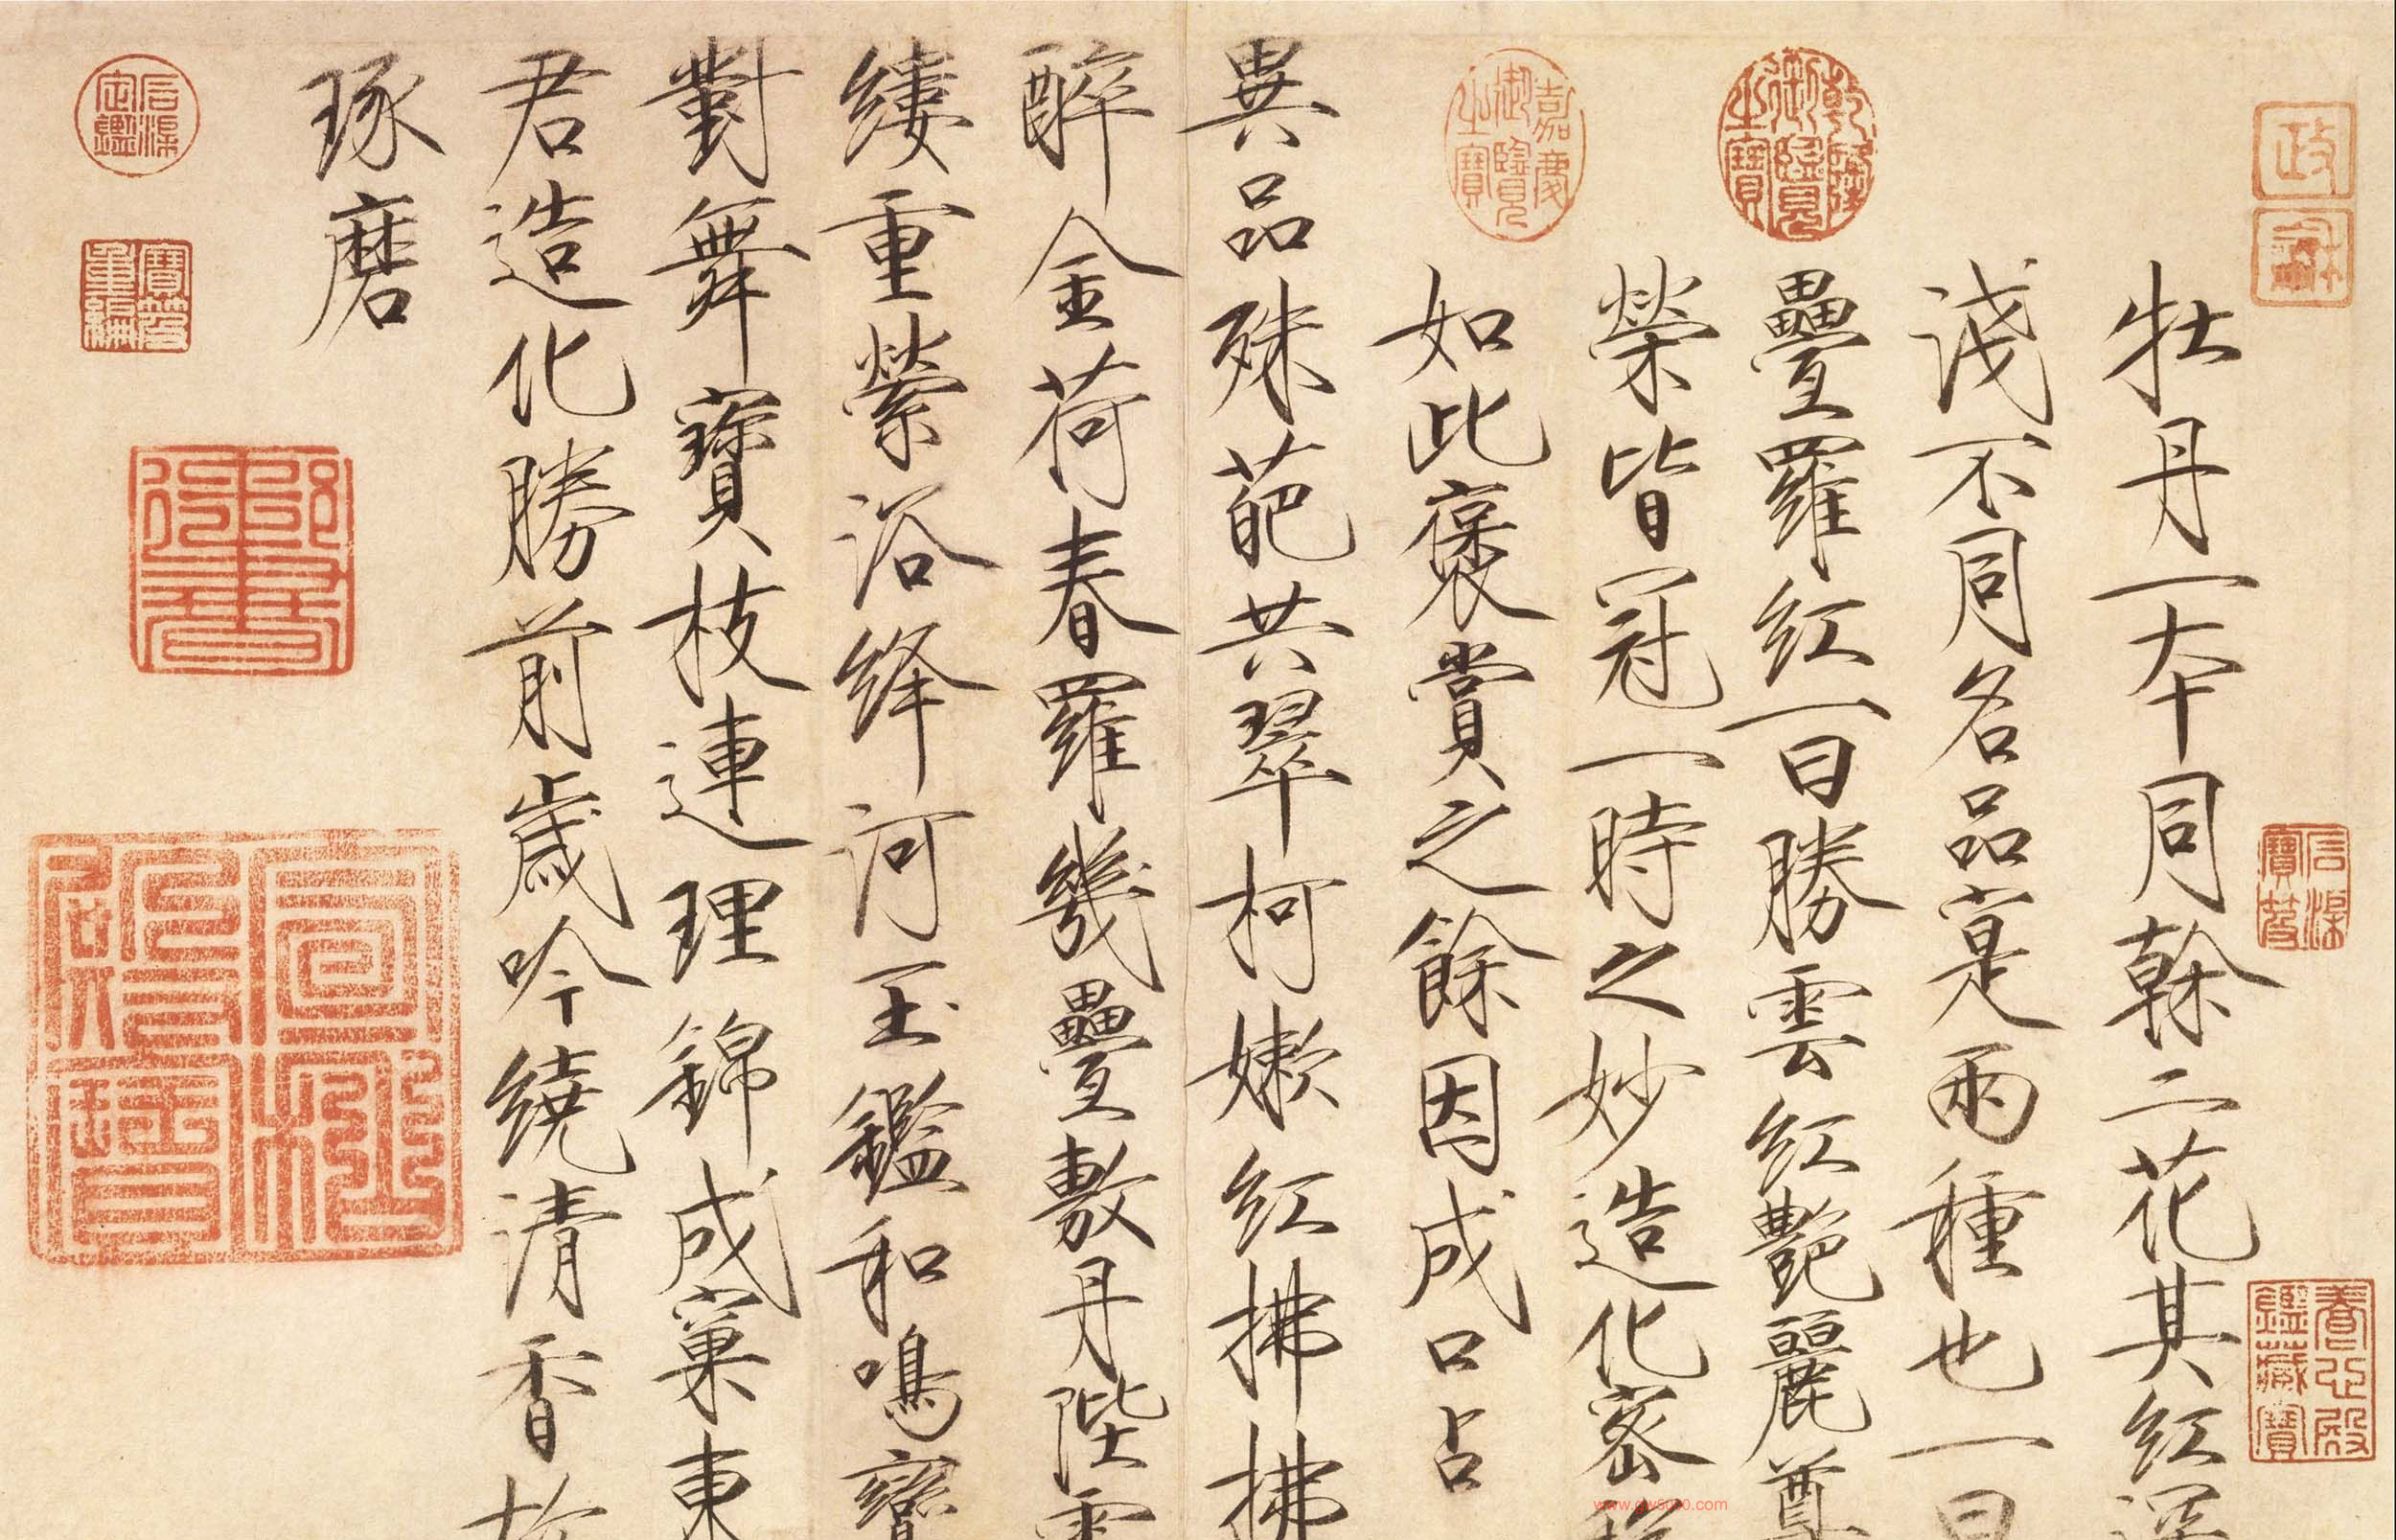 牡丹一本同榦二花其紅深
淺不同名品寔兩種也一曰
疊羅紅一曰勝雲紅艷麗尊
榮皆冠一時之妙造化密
如此褒賞之餘因成口占
異品殊葩共翠柯嫩紅拂拂
醉金荷春羅幾疊敷丹陛雲
縷重縈浴絳河玉鑑和鳴鸞
對舞寶枝連理錦成窠東
君造化勝前歲吟繞清香故
琢磨
石渠寶笈
養心殿鑑藏寶
乾隆御覽之寶
嘉慶御覽之寶
石渠定鑑
寶笈重編